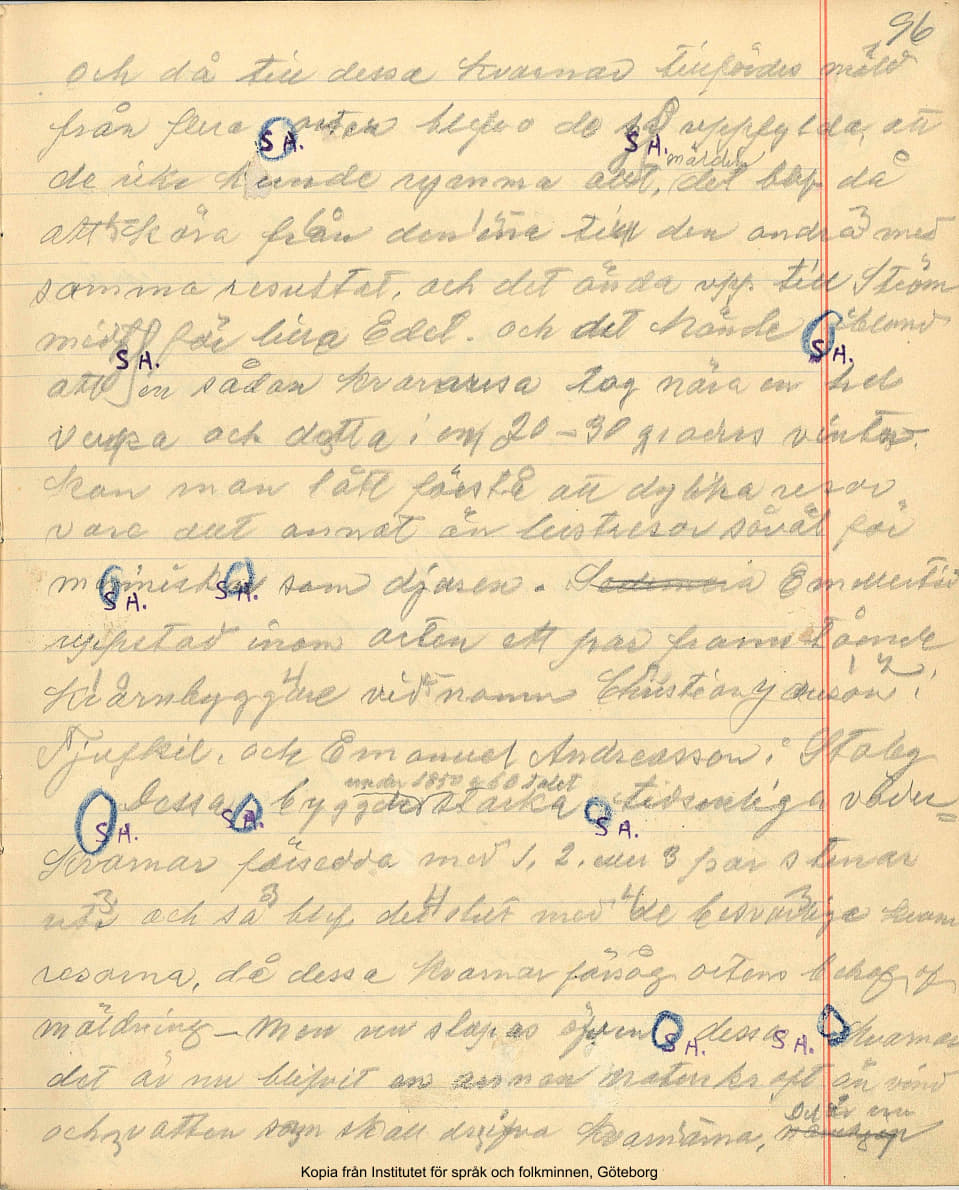 96
och då till dessa kvarnar tillfördes mäld
från flera orter blefvo de så uppfylda, att
S H. S H. mälden
de icke kunde rymma allt, det blef då
att köra från den ena till den andra med
samma resultat, och det ända upp till Ström
för lilla Edet. och det hände ibland
S H. S H.
att en sådan kvarnresa tog nära en hel
vecka och detta i en 20-30 graders vinter.
kan man lätt förstå att dylika resor
vare allt annat än lustresor såväl för
menniskan som djuren. Emellertid
S H. S H.
uppstod inom orten ett par framstående
kvarnbyggare vid namn Christian Jonsson i
Tjufkil, och Emanuel Andreasson i Staby
under 1850 & 60 talet
Dessa byggde starka tidsenliga väder=
S H. S H. S H.
kvarnar försedda med 1, 2. eller 3 par stenar
och så blef det slut med de besvärliga kvarn
resorna, då dessa kvarnar försåg ortens behof af
mäldning - Men nu slopas äfven dessa kvarnar
S H. S H.
det är nu blifvit en annan motorkraft än vind
Det är en
och vatten som skall drifva kvarnarna,
Kopia från Institutet för språk och folkminnen, Göteborg